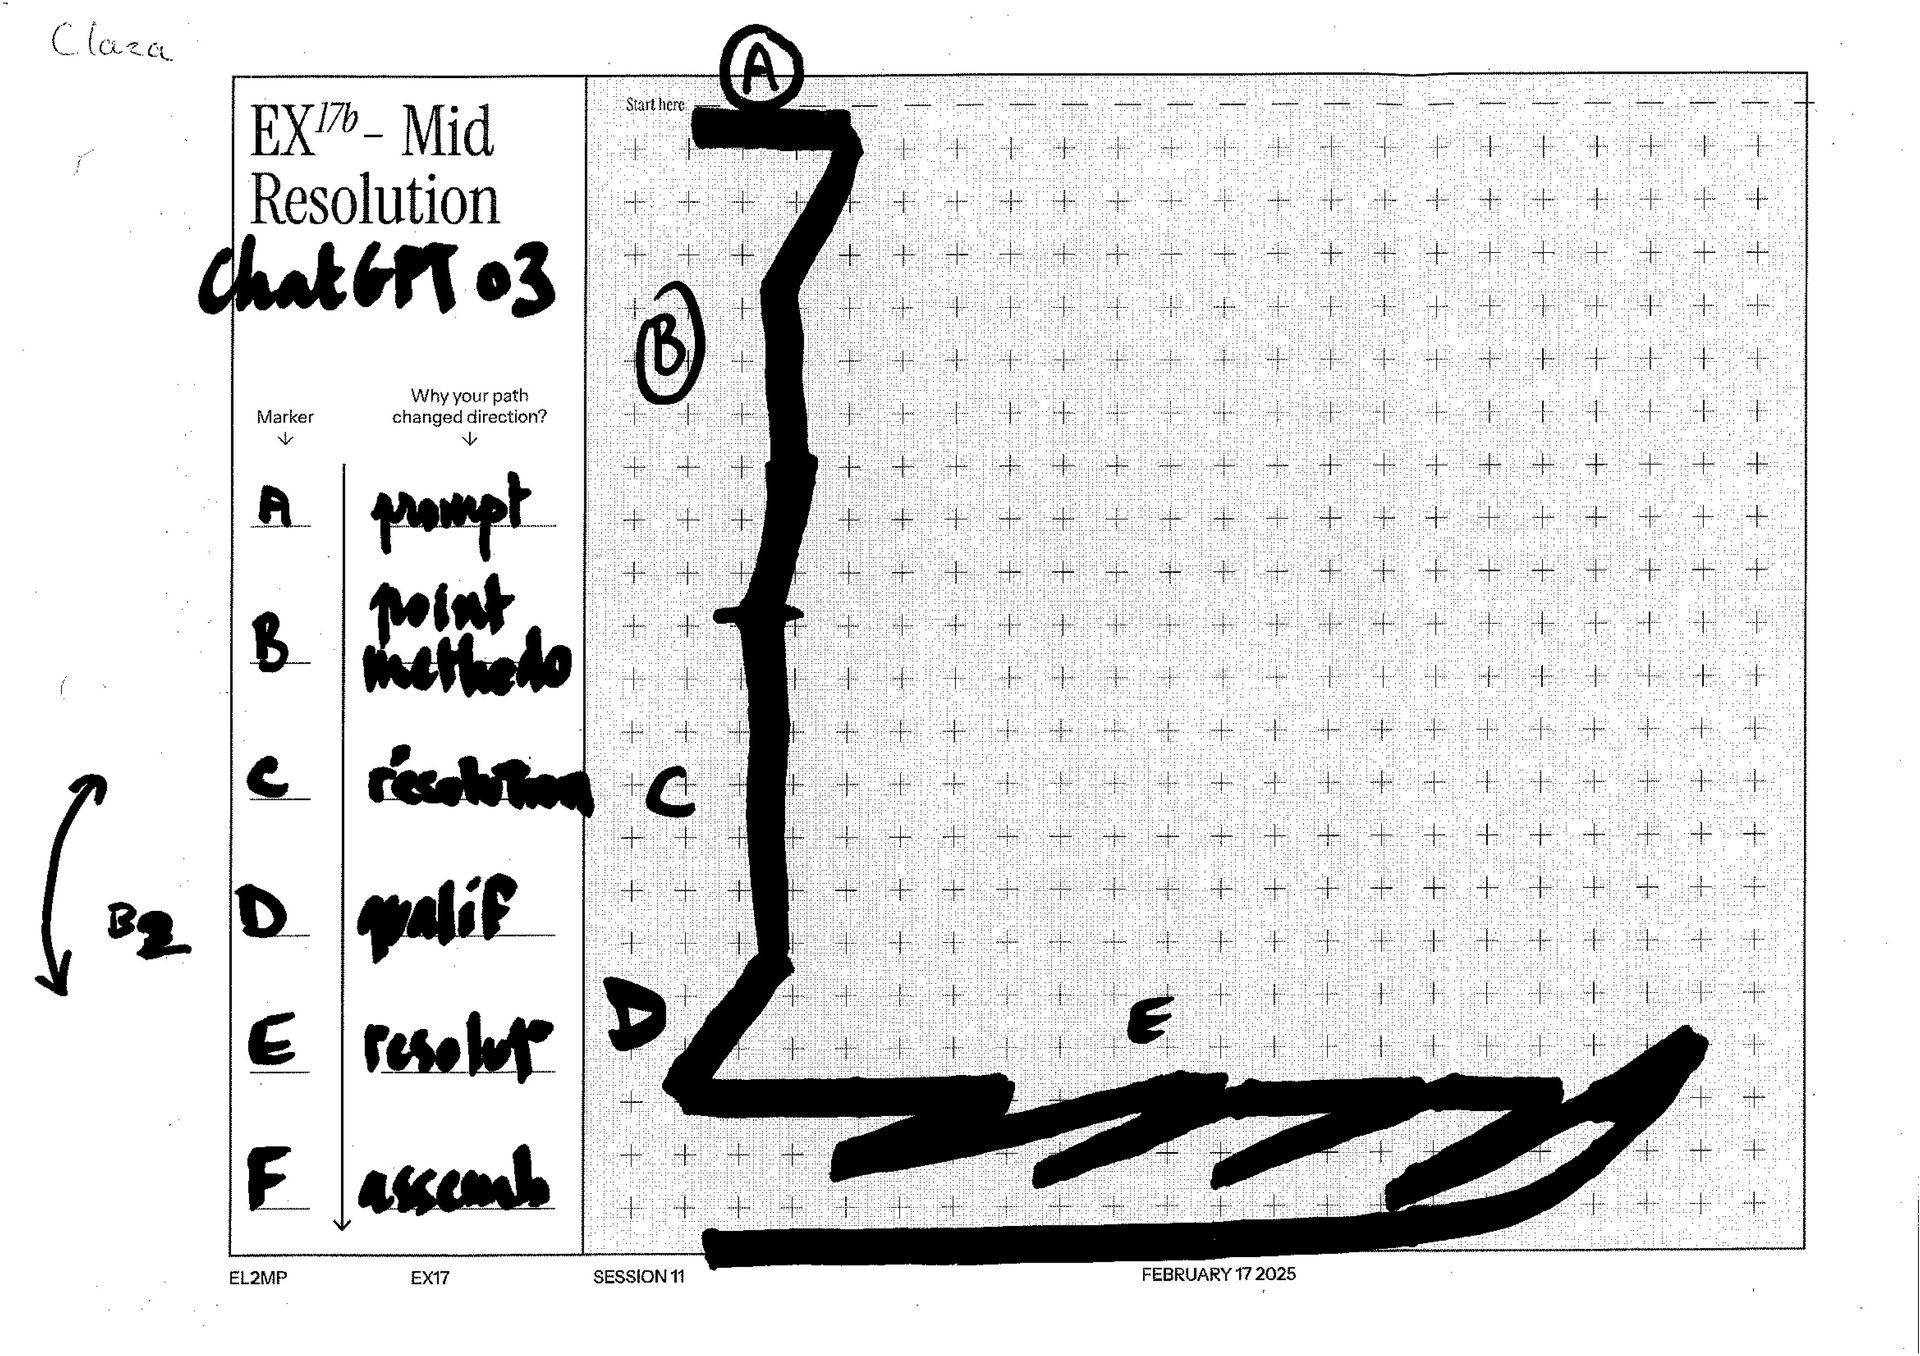 Claza
EX17b – Mid
Resolution
ChatGPT o3
Marker
Why your path
changed direction?
A prompt
B point
methodo
C résolution
D qualif
E resolut°
F assemb
B2
Start here
A
B
C
D
E
EL2MP EX17 SESSION 11 FEBRUARY 17 2025